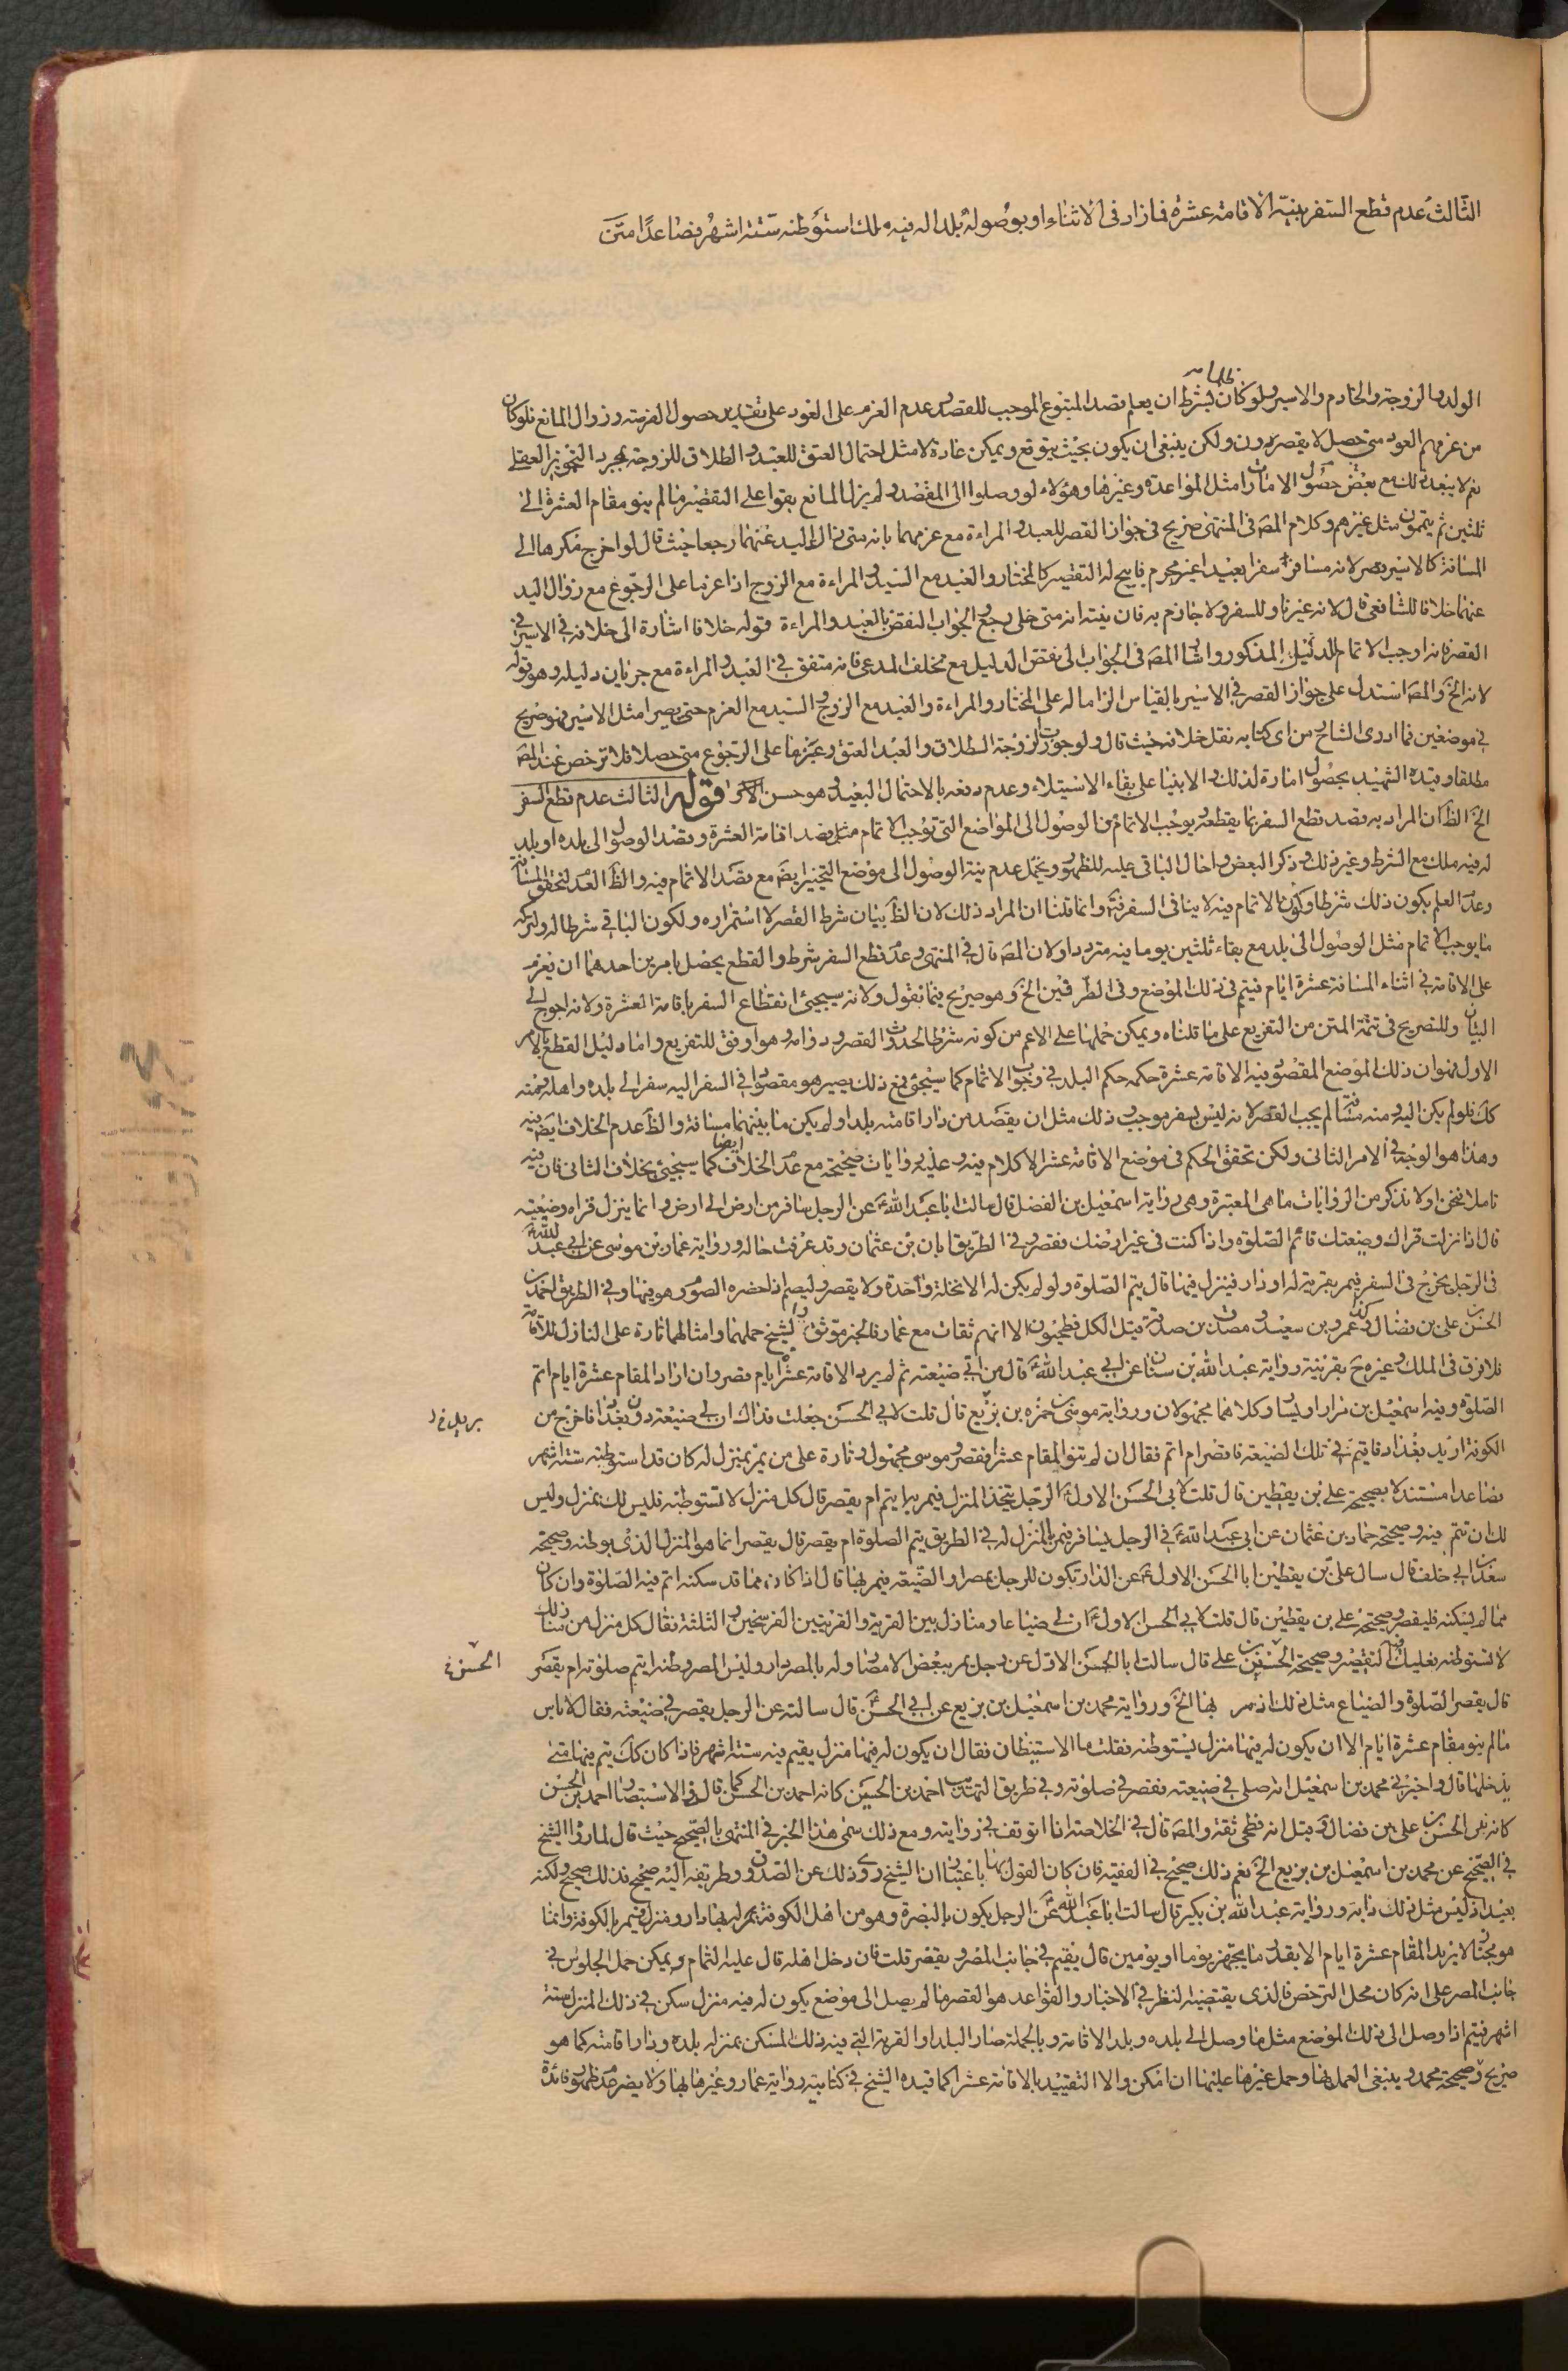 الثالث عدم قطع السفر بنيّة الاقامة عشرة فما زاد فى الاثناء او بوصوله بلدا له فيه ملك استوطنه ستة اشهر فصاعدًا متى
الولد والزوجة والخادم والاسير ولو كان بشرط ان يعلم قصد المتبوع الموجب للقصر وعدم العزم على العود على تقدير حصول الفرصة وزوال المانع فلو كان
ظلما
من عزمهم العود متى حصل لا يقصرون ولكن ينبغى ان يكون بحيث يتوقع ويمكن عادة لا مثل احتمال العتق للعبد والطلاق للزوجة بمجرد التجويز العقلى
نعم لا يبعد ذلك مع بعض حصول الامارات مثل المواعدة وغيرها وهؤلاء لو وصلوا الى المقصد ولم يزل المانع بقوا على التقصير ما لم ينو مقام العشرة الى
ثلثين ثم يتمون مثل غيرهم وكلام المص فى المنتهى صريح فى جواز القصر للعبد والمراءة مع عزمهما بانه متى زال اليد عنهما رجعا حيث قال لو اخرج مكرها الى
المسافة كالاسير قصر لانه مسافر سفرا بعيدا غير محرم فابيح له التقصير كالمختار والعبد مع السيد والمراءة مع الزوج اذا عزما على الرجوع مع زوال اليد
عنهما خلافا للشافعى قال لانه غير ناو للسفر ولا جازم به فان نيته انه متى خلى رجع والجواب النقض بالعبد والمراءة قوله خلافا اشارة الى خلافه فى الاسير فى
القصر فانه اوجب الاتمام للدليل المذكور واشار المص فى الجواب الى نقض الدليل مع تخلف المدعى فانه متفق فى العبد والمراءة مع جريان دليله وهو قوله
لانه الخ والمص استدل على جواز القصر فى الاسير بالقياس الزاما له على المختار والمراءة والعبد مع الزوج والسيد مع العزم حتى يصير مثل الاسير فهو صريح
فى موضعين فما ادرى الشارح من اى كتابه نقل خلافه حيث قال ولو جوزت الزوجة الطلاق والعبد العتق وعزما على الرجوع متى حصلا فلا ترخص عند المص
مطلقا وقيده الشهيد بحصول امارة لذلك والا بنيا على بقاء الاستيلاء وعدم دفعه بالاحتمال البعيد وهو حسن قوله الثالث عدم قطع السفر
الخ الظ ان المراد به قصد قطع السفر بما يقطعه ويوجب الاتمام من الوصول الى المواضع التى توجب الاتمام مثل قصد اقامة العشرة وقصد الوصول الى بلده او بلد
له فيه ملك مع الشرط وغير ذلك وذكر البعض واحال الباقى عليه للظهور ويحتمل عدم نية الوصول الى موضع التخيير ايض مع قصد الاتمام فيه والظ العدم لتحقق المسافة
وعدم العلم بكون ذلك شرطا وكون الاتمام فيه لا ينافى السفر وانما قلنا ان المراد ذلك لان الظ بيان شرط القصر لا استمراره ولكون الباقى شرطا له ولتركه
ما يوجب الاتمام مثل الوصول الى بلد مع بقاء ثلثين يوما فيه مترددا ولان المص قال فى المنتهى وعدم قطع السفر شرط والقطع يحصل بامرين احدهما ان يعزم
على الاقامة فى اثناء المسافة عشرة ايام فيتم فى ذلك الموضع وفى الطرفين الخ وهو صريح فيما نقول ولانه سيجيئ انقطاع السفر باقامة العشرة ولانه احوج الى
البيان وللتصريح فى تتمة المتن من التفريع على ما قلناه ويمكن حملها على الاعم من كونه شرط الحدوث القصر ودوامه وهو اوفق للتفريع واما دليل القطع بالامر
الاول فهو ان ذلك الموضع المقصود فيه الاقامة عشرة حكمه حكم البلد فى وجوب الاتمام كما سيجئ فمع ذلك يصير هو مقصودا فى السفر اليه سفر الى بلده واهله ومنه
كك فلو لم يكن اليه ومنه مسافة لم يجب القصر لانه ليس بسفر موجب وذلك مثل ان يقصد من دار اقامته بلدا ولم يكن ما بينهما مسافة والظ عدم الخلاف ايض فيه
وهذا هو الوجه فى الامر الثانى ولكن تحقق الحكم فى موضع الاقامة عشر الا كلام فيه وعليه روايات صحيحة مع عدم الخلاف ايضا كما سيجيئ بخلاف الثانى فان فيه
تاملا فنحن اولا نذكر من الروايات ما هى المعتبرة وهى رواية اسمعيل بن الفضل قال سالت ابا عبد الله ع عن الرجل سافر من ارض الى ارض وانما ينزل قراه وضيعته
قال اذا نزلت قراك وضيعتك فاتم الصلوة واذا كنت فى غير ارضك فقصر وفى الطريق ابان بن عثمان وقد عرفت حاله ورواية عمار بن موسى عن ابى عبد الله ع
فى الرجل يخرج فى السفر فيمر بقرية له او دار فينزل فيها قال يتم الصلوة ولو لم يكن له الا نخلة واحدة ولا يقصر وليصم اذا حضره الصوم وهو فيها وفى الطريق احمد بن
الحسن بن على بن فضال وعمرو بن سعيد ومصدق بن صدقة قيل الكل فطحيون الا انهم ثقات مع عمار فالخبر موثق والشيخ حملهما وامثالهما تارة على النازل للاقامة
فلا فرق فى الملك وغيره ح بقرينة رواية عبد الله بن سنان عن ابى عبد الله ع قال من اتى ضيعته ثم لم يرد الاقامة عشرة ايام قصر وان اراد المقام عشرة ايام اتم
الصلوة وفيه اسمعيل بن مرار او يسار وكلاهما مجهولان ورواية موسى بن حمزة بن بزيع قال قلت لابى الحسن جعلت فداك ان لى ضيعة دون بغداد فاخرج من
الكوفة اريد بغداد فاقيم فى تلك الضيعة فاقصر ام اتم فقال ان لم تنو المقام عشرا فقصر وموسى مجهول وتارة على من يمر بمنزل له كان قد استوطنه ستة اشهر
فصاعدا مستندلا بصحيحة على بن يقطين قال قلت لابى الحسن الاول ع الرجل يتخذ المنزل فيمر به ايتم ام يقصر قال كل منزل لا تستوطنه فليس لك بمنزل وليس
لك ان تتم فيه وصحيحة حماد بن عثمان عن ابى عبد الله ع فى الرجل يسافر فيمر بالمنزل له فى الطريق يتم الصلوة ام يقصر قال يقصر انما هو المنزل الذى توطنه وصحيحة
سعد بن ابى خلف قال سال على بن يقطين ابا الحسن الاول ع عن الدار تكون للرجل بمصر او الضيعة فيمر بها قال اذا كان مما قد سكنه اتم فيه الصلوة وان كان
مما لم يسكنه فليقصر وصحيحة على بن يقطين قال قلت لابى الحسن الاول ع ان لى ضياعا ومنازل بين القرية والقريتين الفرسخين والثلثة فقال كل منزل من منازلك
لا تستوطنه فعليك فيه التقصير وصحيحة الحسين بن على قال سالت ابا الحسن الاول عن رجل يمر ببعض الامصار وله بالمصر دار وليس المصر وطنه ايتم صلوته ام يقصر
الحسن خ
قال يقصر الصلوة والضياع مثل ذلك اذا مر بها الخ ورواية محمد بن اسمعيل بن بزيع عن ابى الحسن ع قال سالته عن الرجل يقصر فى ضيعته فقال لا باس
ما لم ينو مقام عشرة ايام الا ان يكون له فيها منزل يستوطنه فقلت ما الاستيطان فقال ان يكون له فيها منزل يقيم فيه ستة اشهر فاذا كان كك يتم فيها متى
يدخلها قال واخبرنى محمد بن اسمعيل انه صلى فى ضيعته فقصر فى صلوته وفى طريق التهذيب احمد بن الحسين كانه احمد بن الحسن كما قال فى الاستبصار احمد بن الحسن
كانه بن الحسن بن على بن فضال وقيل انه فطحى ثقة والمص قال فى الخلاصة انا اتوقف فى روايته ومع ذلك سمى هذا الخبر فى المنتهى بالصحيح حيث قال لما رواه الشيخ
فى الصحيح عن محمد بن اسمعيل بن بزيع الخ نعم ذلك صحيح فى الفقيه فان كان القول بها باعتبار ان الشيخ روى ذلك عن الصدوق وطريقه اليه صحيح فذلك صحيح ولكنه
بعيد اذ ليس مثل ذلك دابه ورواية عبد الله بن بكير قال سالت ابا عبد الله ع عن الرجل يكون بالبصرة وهو من اهل الكوفة له بها دار ومنزل فيمر بالكوفة وانما
هو مجتاز لا يريد المقام عشرة ايام الا بقدر ما يتجهز يوما او يومين قال يقيم فى جانب المصر ويقصر قلت فان دخل اهله قال عليه التمام ويمكن حمل الجلوس فى
جانب المصر على انه كان محل الترخص فالذى يقتضيه النظر فى الاخبار والقواعد هو القصر ما لم يصل الى موضع يكون له فيه منزل سكن فى ذلك المنزل ستة
اشهر فيتم اذا وصل الى ذلك الموضع مثل ما وصل الى بلده وبلد الاقامة وبالجملة صار البلد او القرية التى فيه ذلك المسكن بمنزلة بلده ودار اقامته كما هو
صريح صحيحة محمد وينبغى العمل بها وحمل غيرها عليها ان امكن والا التقييد بالاقامة عشرا كما قيده الشيخ فى كتابيه رواية عمار وغيرها بها ولا يضر عدم ظهور فائدة